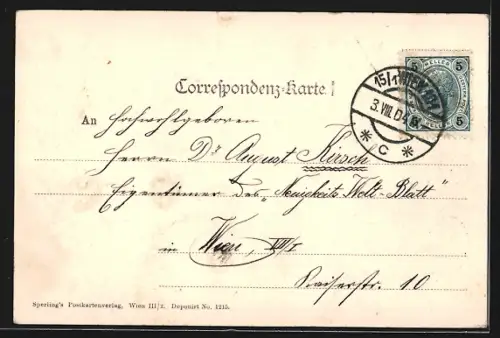 Correspondenz-Karte.
An Hochwohlgeboren
Herrn Dr August Kirsch
Eigentümer des „Neuigkeits Welt-Blatt"
in Wien, VII/I
Kaiserstr. 10
Sperling's Postkartenverlag, Wien III/2. Deponirt No. 1215.
HELLER
5 5
5 5
WIEN
3.VIII.04
* C *